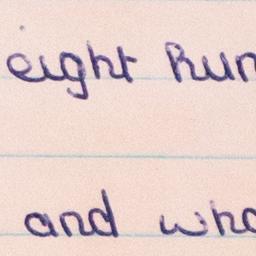 eight hun
and who